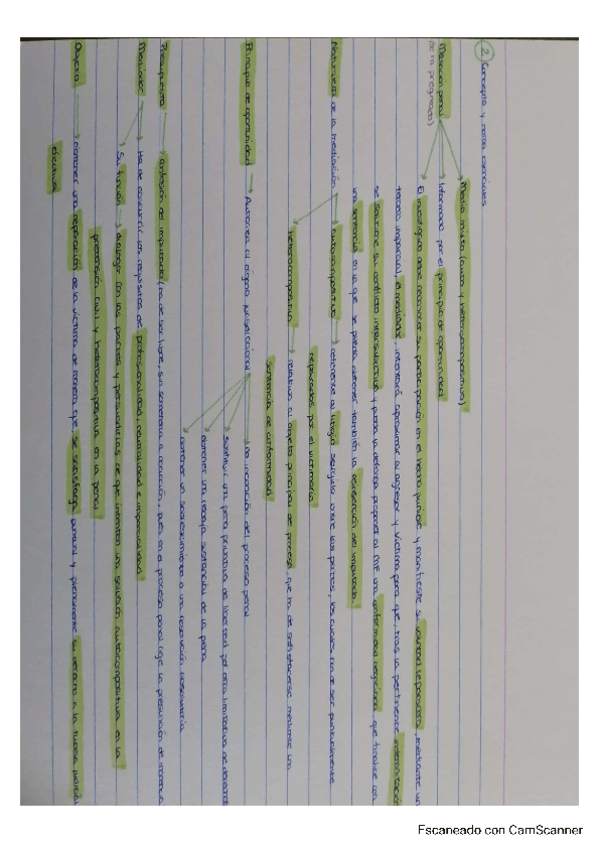 ② Concepto y notas esenciales
Mediación penal
(de la pregunta)
Medio mixto (auto y heterocompositivo)
Informado por el principio de oportunidad
El investigado debe reconocer su participación en el hecho punible y manifieste su voluntad reparadora, mediante un
tercero imparcial, el mediador, intentará aproximar al agresor y víctima para que, tras la pertinente indemnización
se solucione su conflicto intersubjetivo y pueda la defensa proponer al MF una conformidad negociada que finalice con
una sentencia en la que se pueda obtener también la reinserción del imputado.
Naturaleza de la mediación
autocompositiva → referente al litigio surgido entre las partes, los cuales han de ser puntualmente
reparados por el victimario
heterocompositiva → relativa al objeto principal del proceso, que ha de satisfacerse mediante una
sentencia de conformidad
Principio de oportunidad → Autoriza al órgano jurisdiccional
la incoación del proceso penal
sustituir una pena privativa de libertad por otra limitativa de derechos
obtener una rebaja sustancial de la pena
obtener un sobreseimiento o una resolución absolutoria
Presupuesto → confesión del imputado (ha de ser libre, sin someterla a coacción, pues en el proceso penal rige la presunción de inocencia
Mediador
Ha de concurrir los requisitos de profesionalidad, neutralidad e imparcialidad
Su función → dialogar con las partes y persuadirlas de que intenten una solución autocompositiva en la
pretensión civil y heterocompositiva en la penal
Objeto → obtener una reparación de la víctima de manera que se satisfaga puntual y plenamente su derecho a la tutela judicial
efectiva
Escaneado con CamScanner